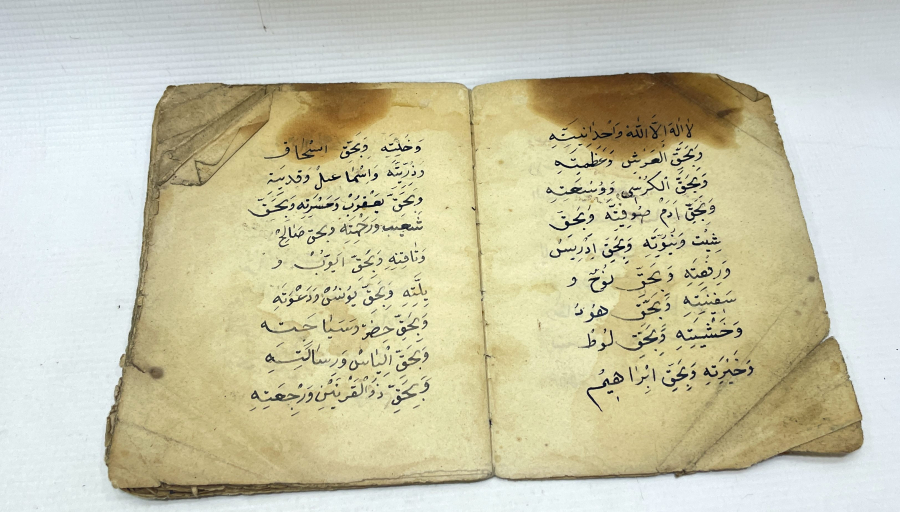 لا اله الا الله واحدانيته
وبحق العرش وعظمته
وبحق الكرسي ووسعته
وبحق ادم صوفيته وبحق
شيث ونبوته وبحق ادريس
ورفعته وبحق نوح و
سفينته وبحق هود
وخشيته وبحق لوط
وخيرته وبحق ابراهيم
وخلته وبحق اسحاق
وذريته واسماعيل وفديته
وبحق يعقوب وحسرته وبحق
شعيب ورحمته وبحق صالح
وناقته وبحق ايوب و
بليته وبحق يونس ودعوته
وبحق خضر وسياحته
وبحق الياس ورسالته
وبحق ذو القرنين ورجعته